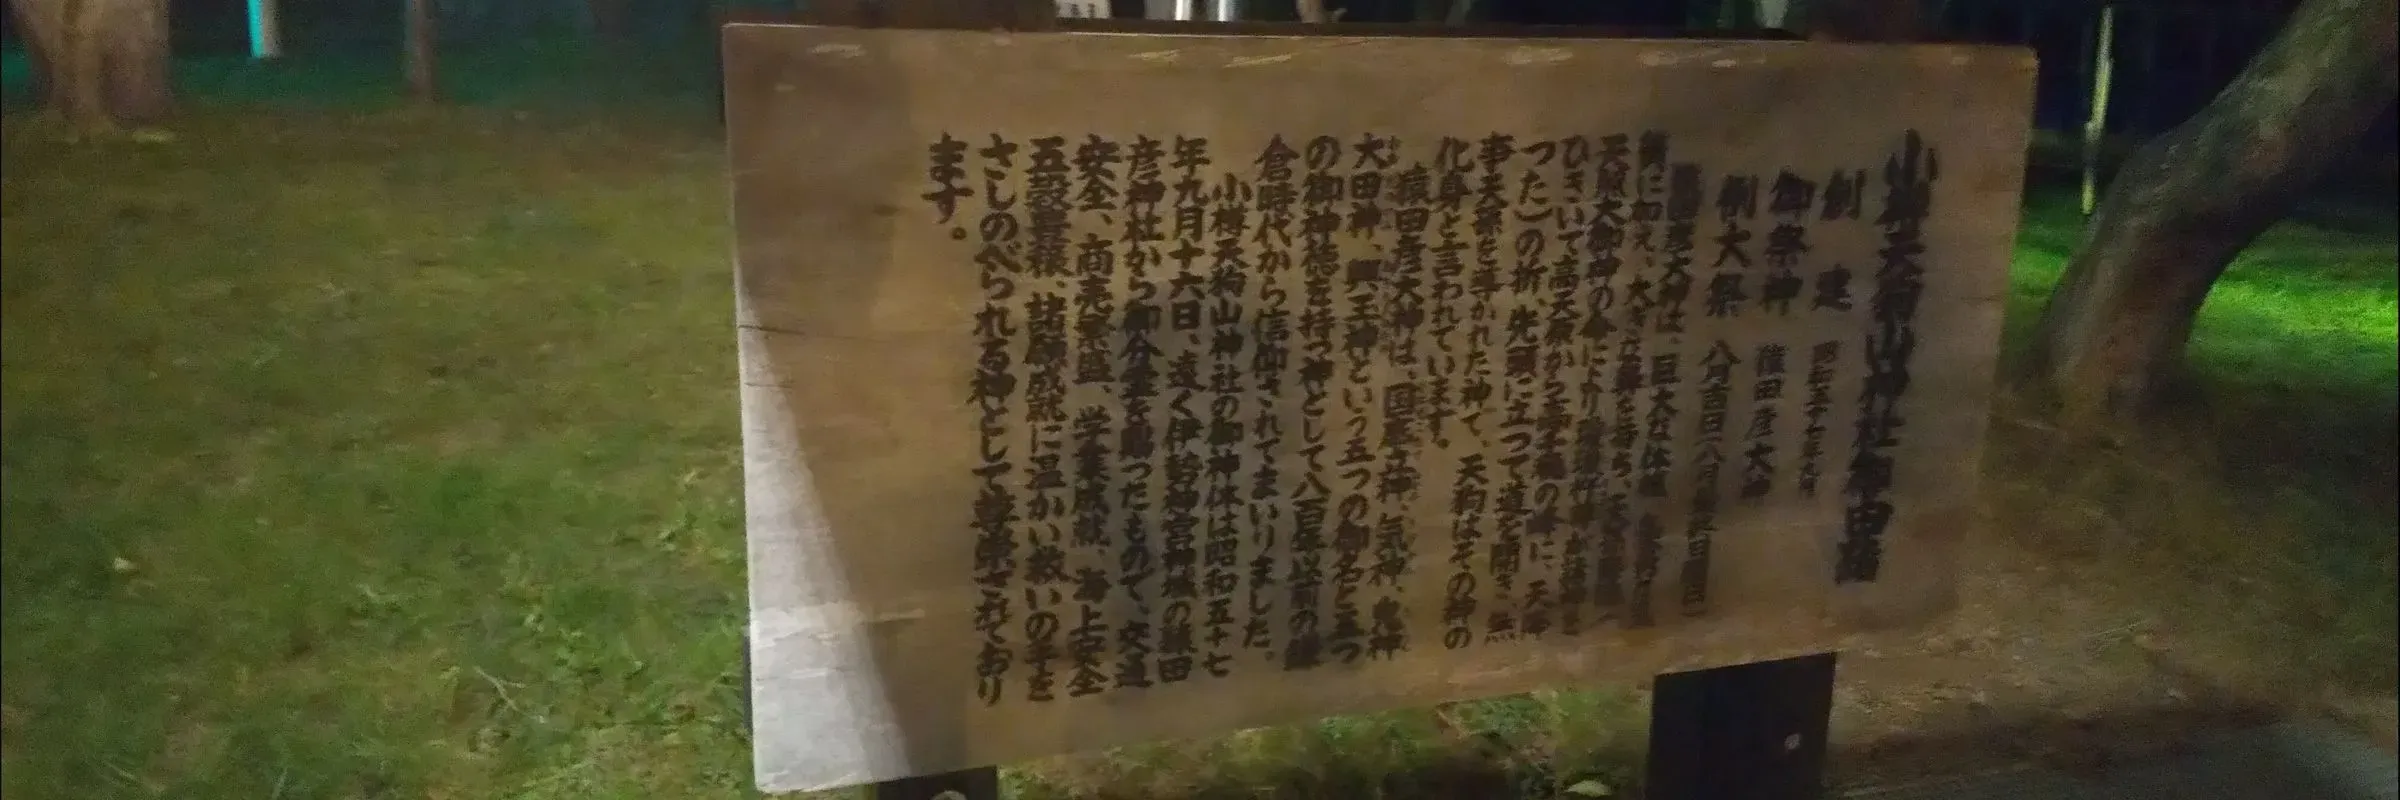 小樽天狗山神社御由緒
創建 昭和五十七年九月
御祭神 猿田彦大神
例大祭 八月
猿田彦大神は、巨大な体
に加え、大きな鼻を持ち、
天照大御神の命により
ひきいて高天原から高千穂の峰に、天降
った)の折、先頭に立って道を開き、無
事天孫を導かれた神で、天狗はその神の
化身と言われています。
猿田彦大神は、国底立神、気神、鬼神
大田神、興玉神という五つの御名と五つ
の御神徳を持つ神として八百年以前の鎌
倉時代から信仰されてまいりました。
小樽天狗山神社の御神体は昭和五十七
年九月十六日、遠く伊勢神宮神域の猿田
彦神社から御分霊を賜ったもので、交通
安全、商売繁盛、学業成就、海上安全
五穀豊穣、諸願成就に温かい救いの手を
さしのべられる神として尊崇されており
ます。